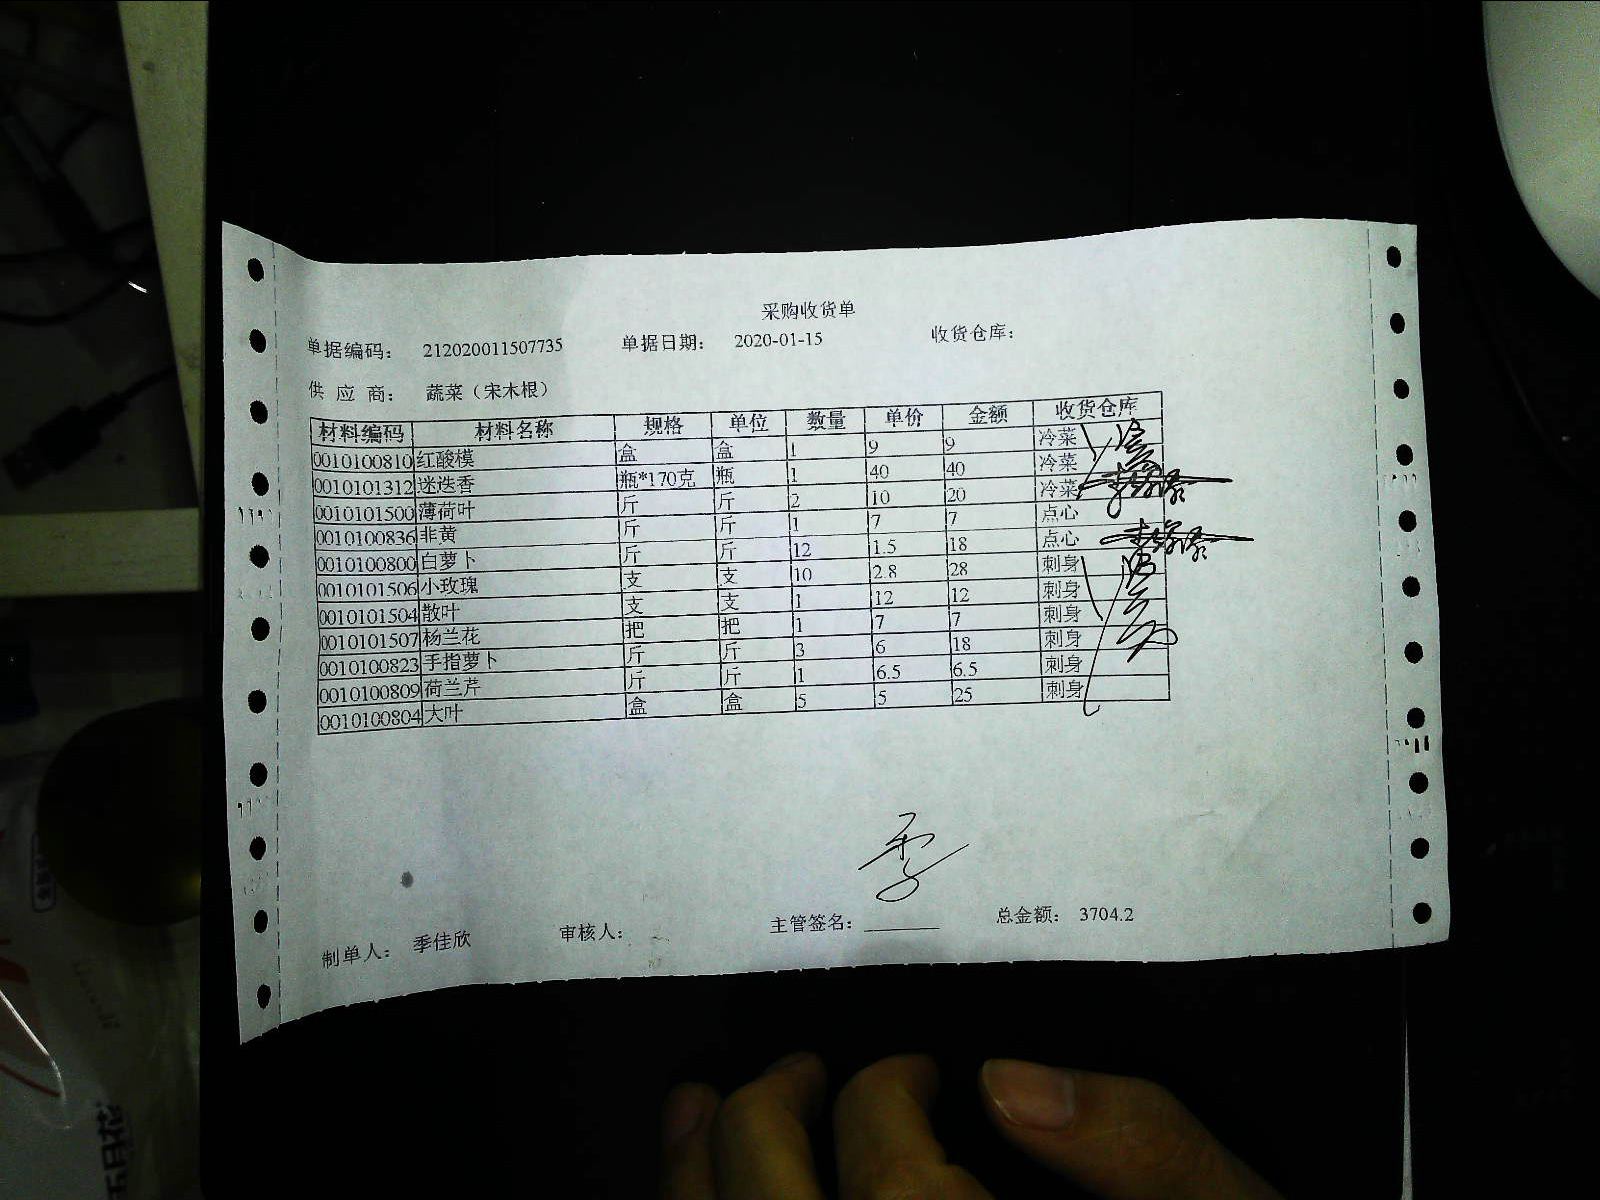 采购收货单
单据编码： 212020011507735 单据日期： 2020-01-15 收货仓库：
供 应 商： 蔬菜（宋木根）
材料编码 材料名称 规格 单位 数量 单价 金额 收货仓库
0010100810 红酸模 盒 盒 1 9 9 冷菜
0010101312 迷迭香 瓶*170克 瓶 1 40 40 冷菜
0010101500 薄荷叶 斤 斤 2 10 20 冷菜
0010100836 韭黄 斤 斤 1 7 7 点心
0010100800 白萝卜 斤 斤 12 1.5 18 点心
0010101506 小玫瑰 支 支 10 2.8 28 刺身
0010101504 散叶 支 支 1 12 12 刺身
0010101507 杨兰花 把 把 1 7 7 刺身
0010100823 手指萝卜 斤 斤 3 6 18 刺身
0010100809 荷兰芹 斤 斤 1 6.5 6.5 刺身
0010100804 大叶 盒 盒 5 5 25 刺身
季
制单人： 季佳欣 审核人： 主管签名： 总金额： 3704.2